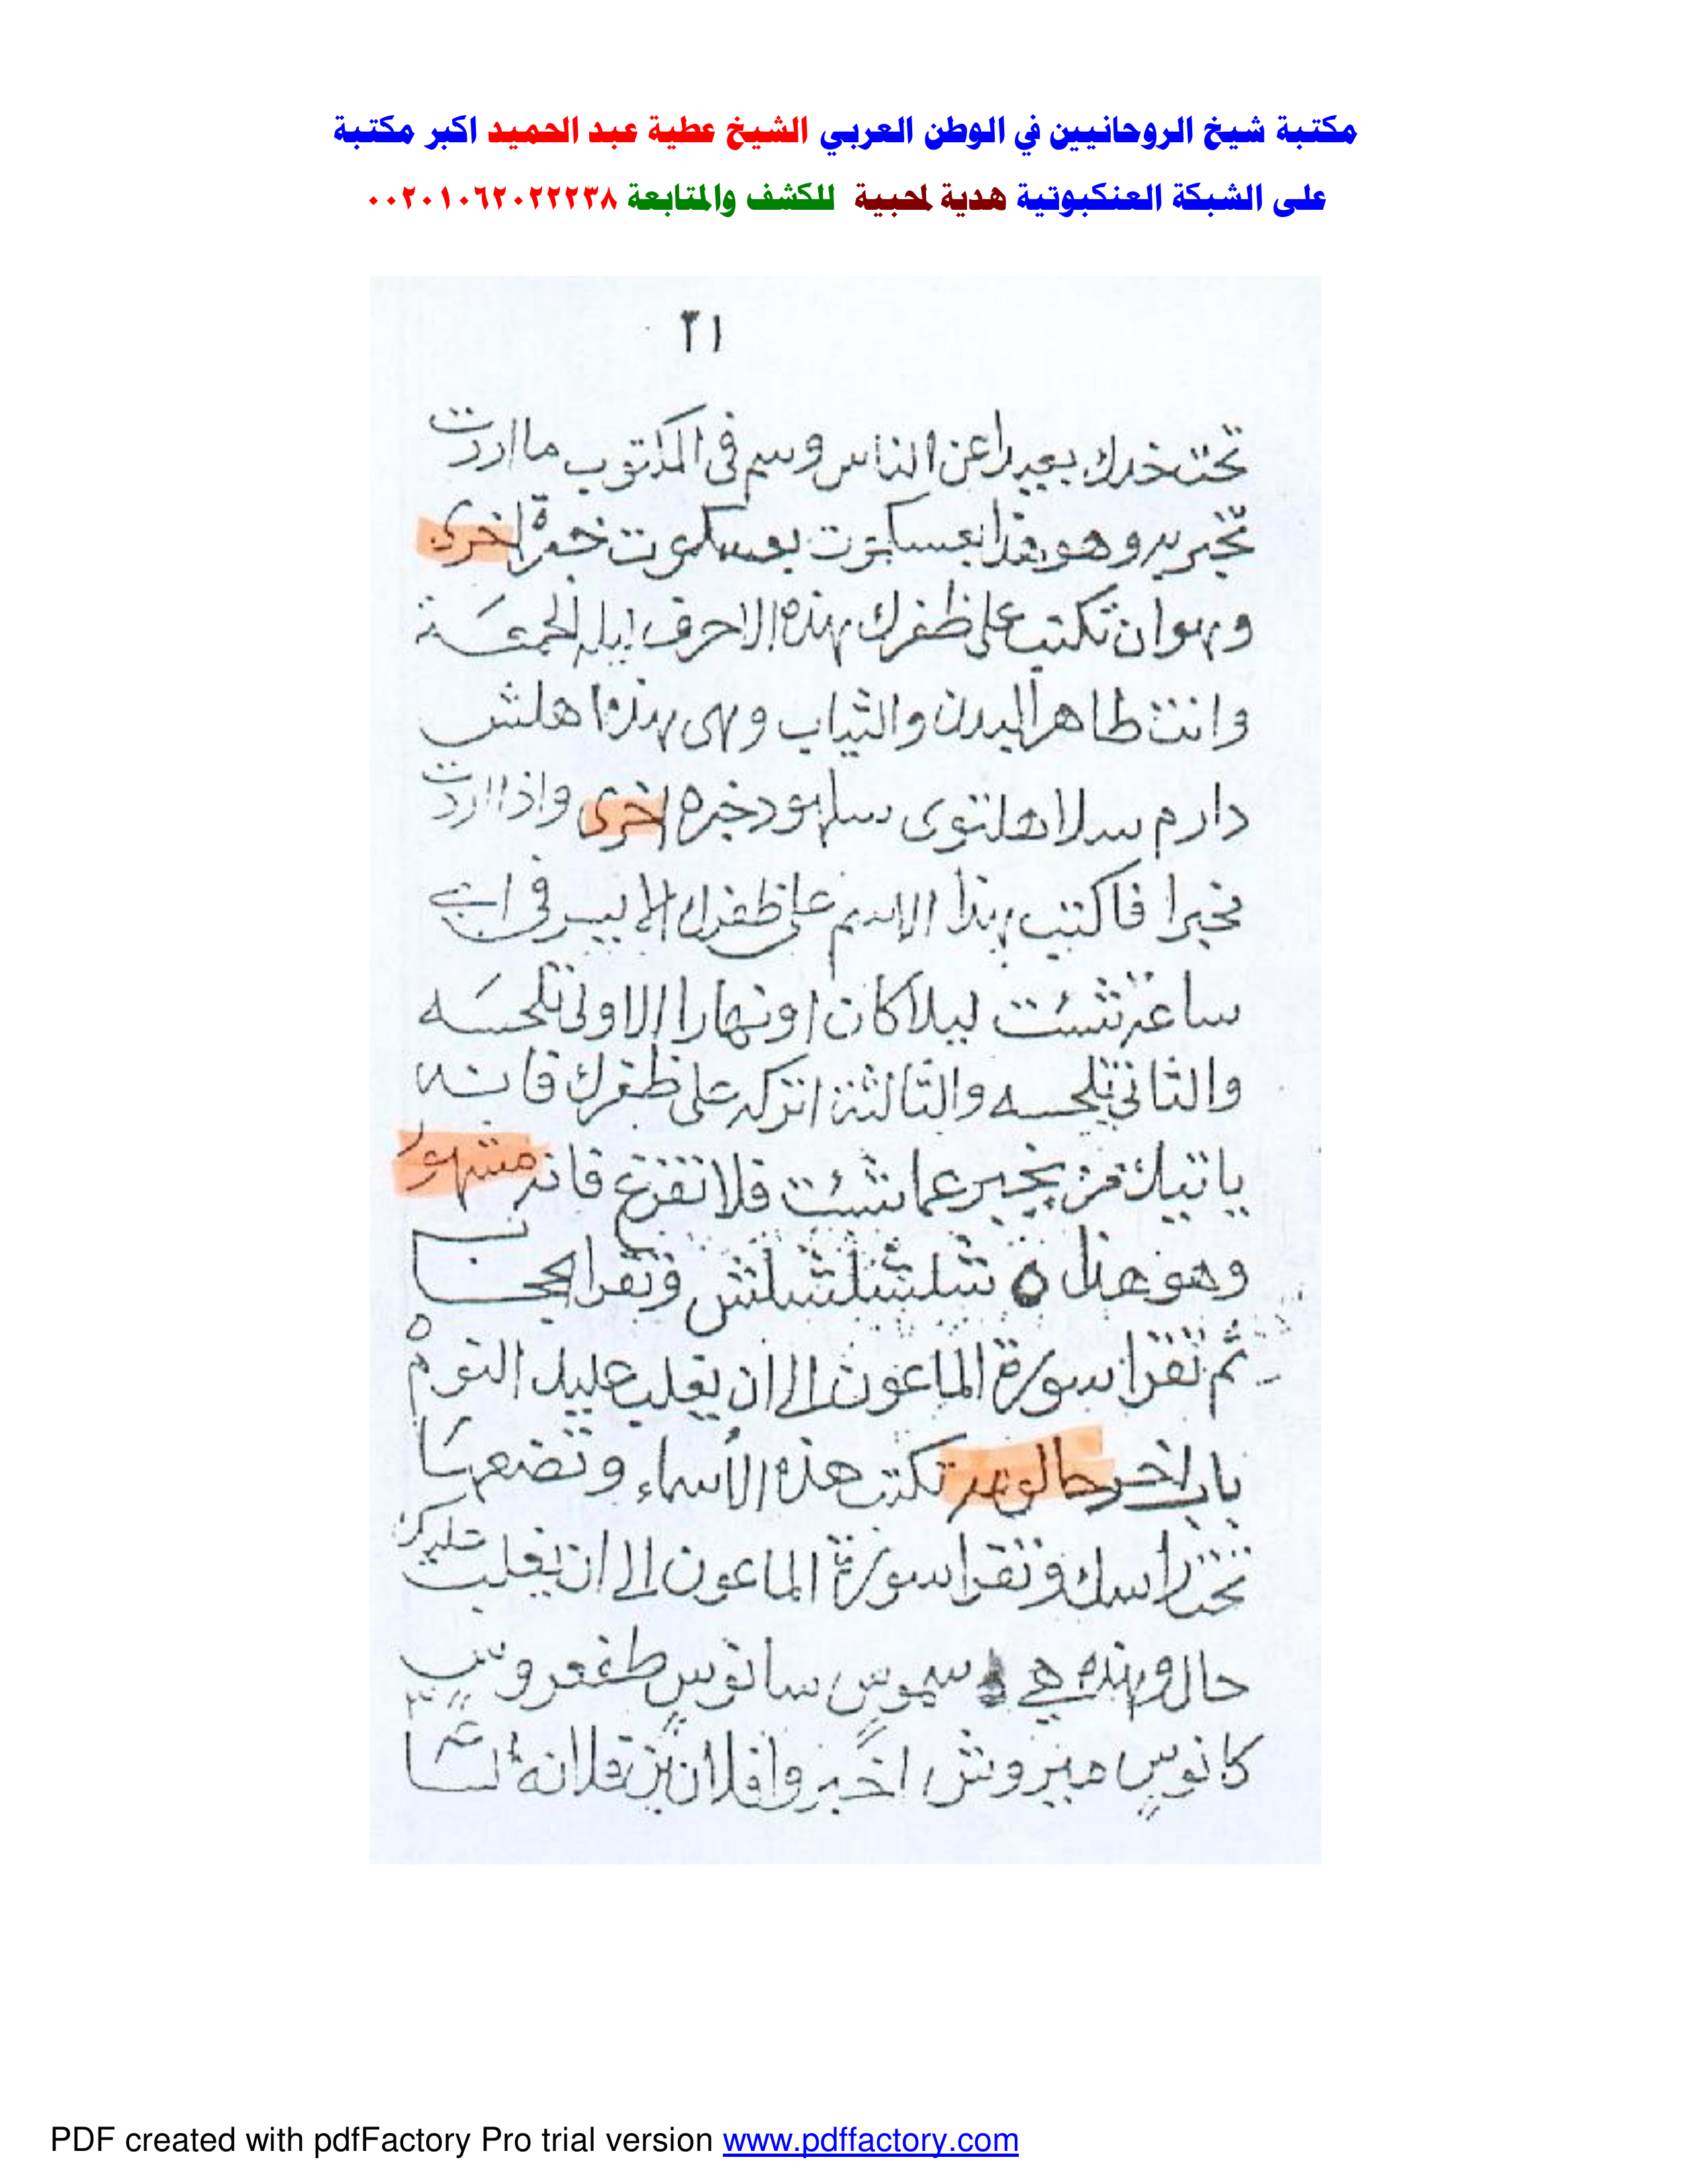 مكتبة شيخ الروحانيين في الوطن العربي الشيخ عطية عبد الحميد اكبر مكتبة
على الشبكة العنكبوتية هدية لمحبية للكشف والمتابعة ٠٠٢٠١٠٦٢٠٢٢٢٣٨
٢١
تحت خدك بعيدا عن الناس وسم فى المكتوب ما اردت
وهو هذا اخرى
وهوان تكتب على ظفرك هذه الاحرف ليلة الجمعة
وانت طاهر البدن والثياب وهى هذه اهلش
دارم سلا هلتوى اخرى واذا اردت
فاكتب هذا الاسم على ظفرك الايسر فى اى
ساعة شئت ليلا كان او نهارا الاولى تلحسه
والثانى تلحسه والثالثة اتركه على ظفرك فانه
ياتيك من يخبر عما شئت فلا تفزع فانه مشهور
وهو هذا ه شلشلشلشلش وتقرا
ثم تقرا سورة الماعون الى ان يغلب عليك النوم
باب اخر تكتب هذه الأسماء وتضعها
تحت راسك وتقرا سورة الماعون الى ان يغلب عليك
حال وهذه هي سموس سانوس
كانوس ميروش اخبروا فلان بن فلانة
PDF created with pdfFactory Pro trial version www.pdffactory.com